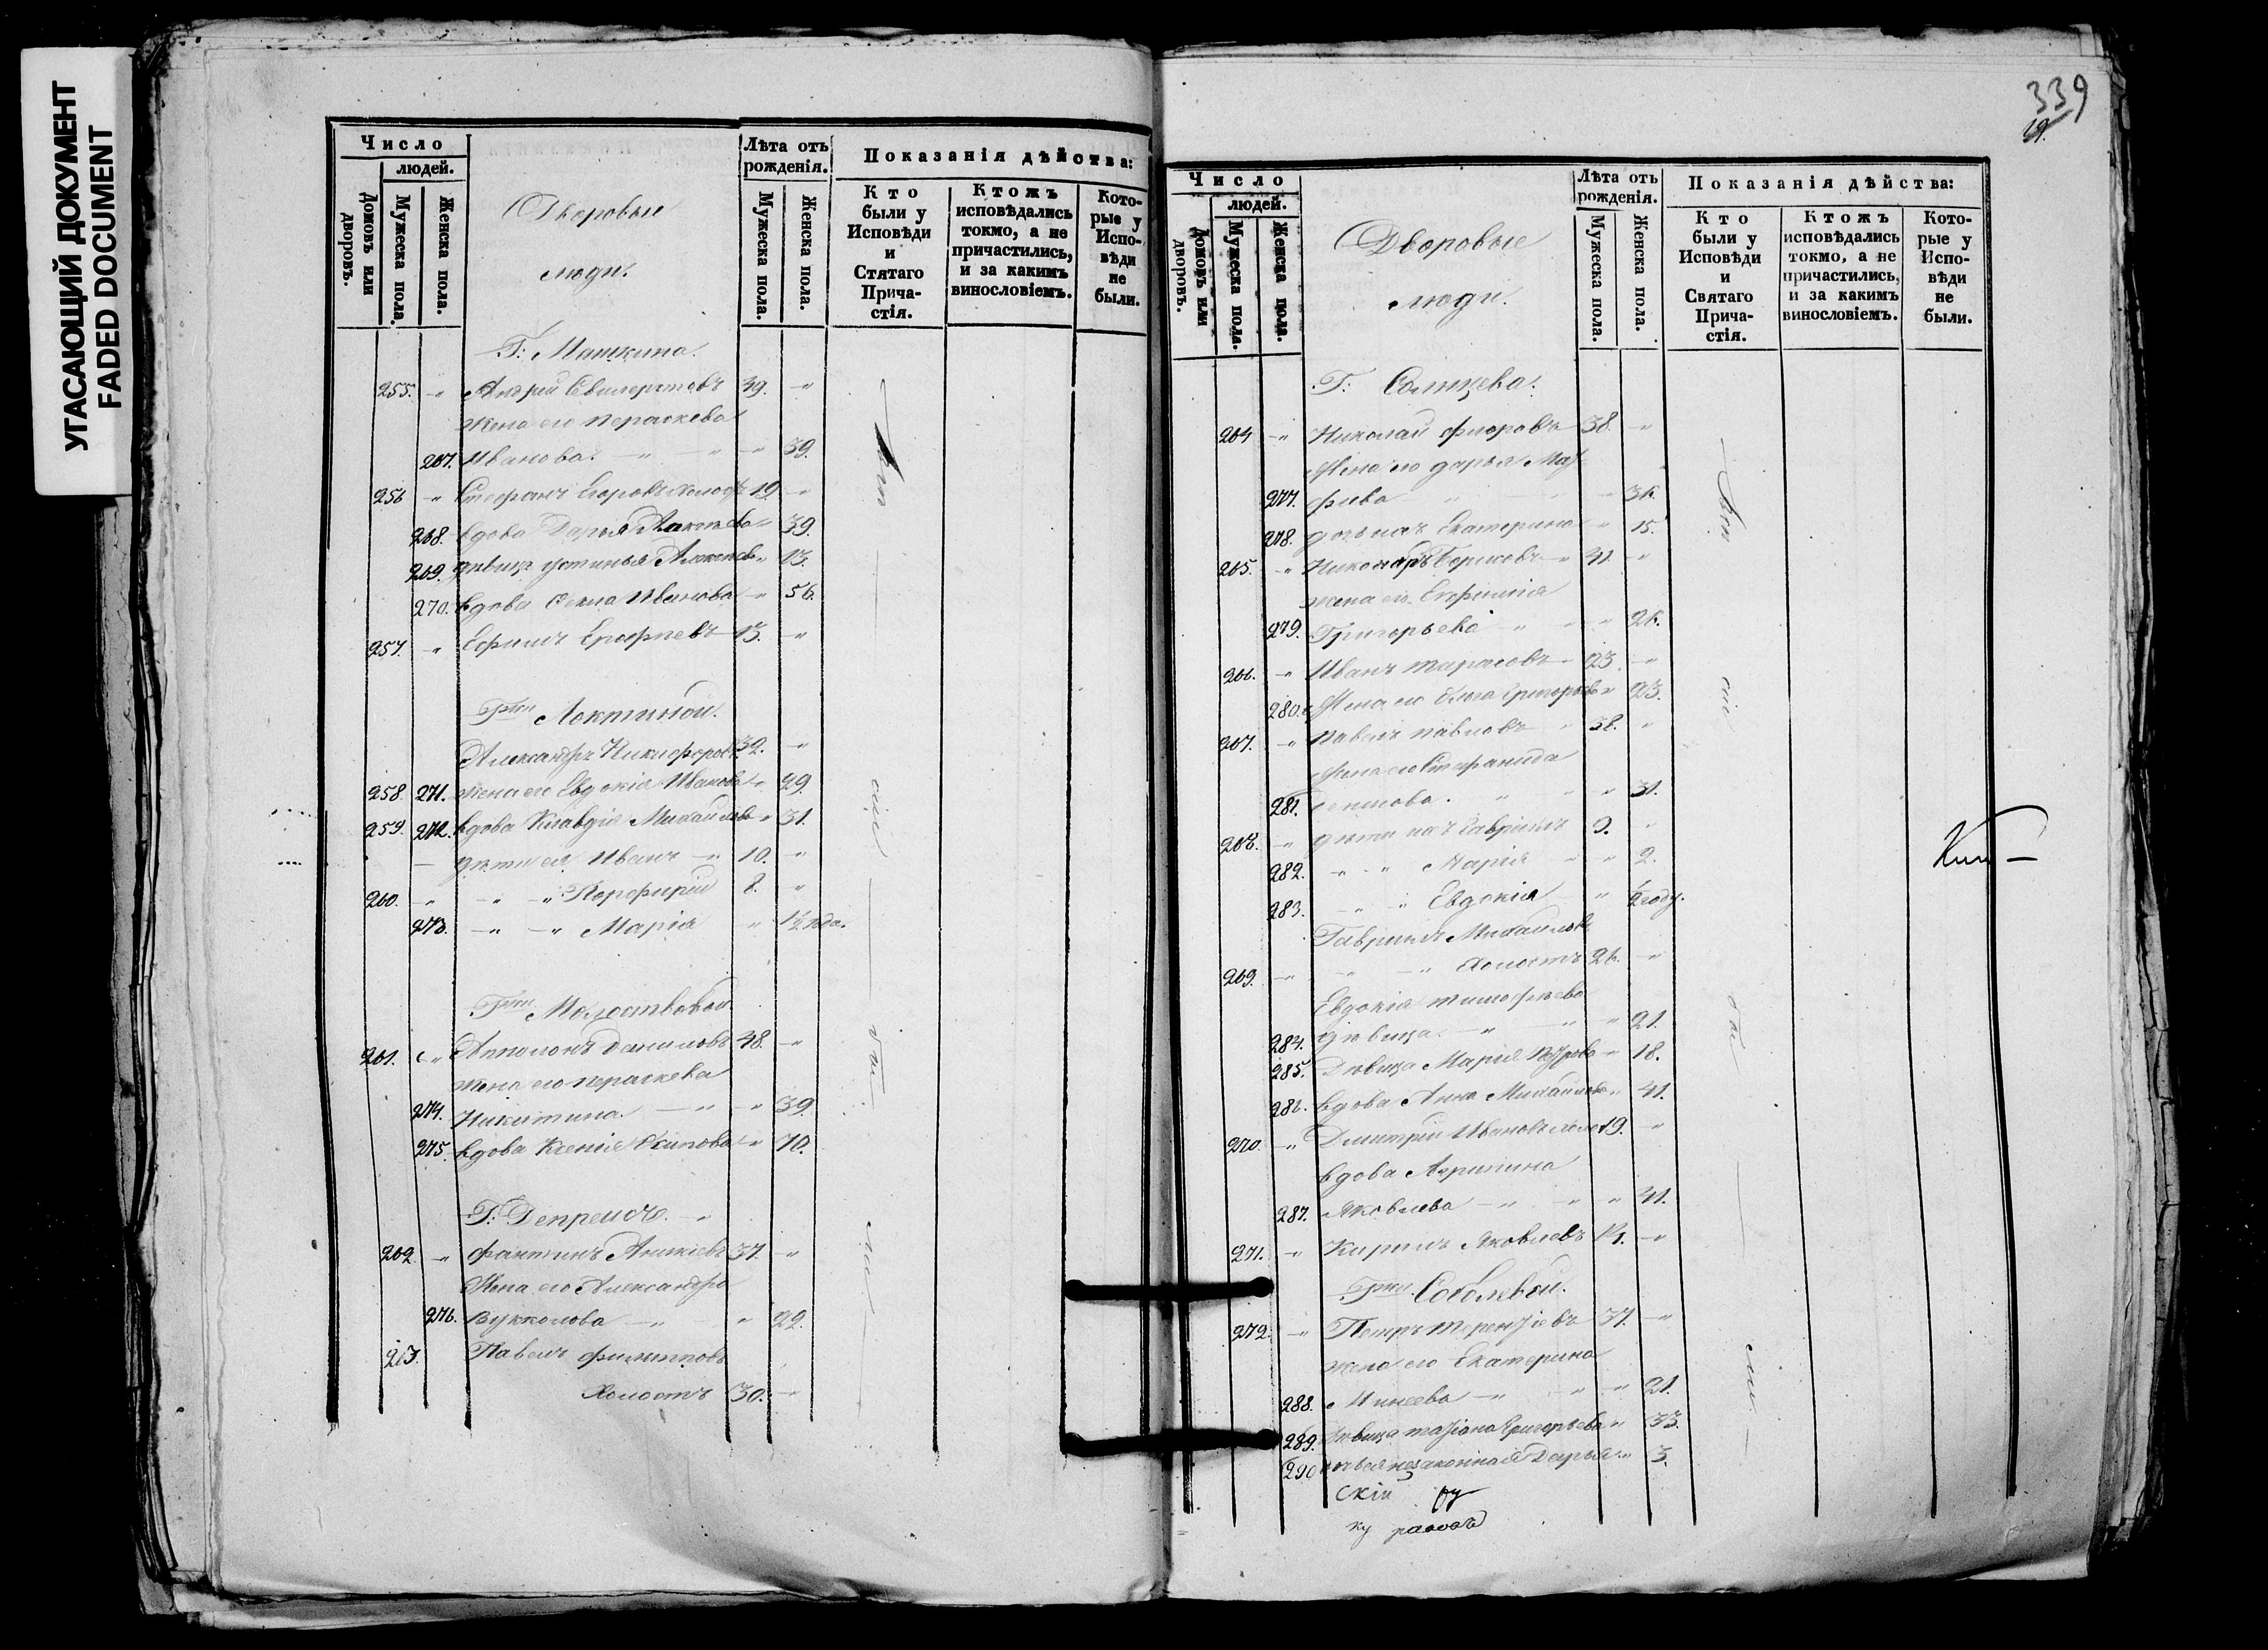 УГАСАЮЩИЙ ДОКУМЕНТ
FADED DOCUMENT
Число
людей.
Домовъ или дворовъ.
Мужеска пола.
Женска пола.
Дворовые
люди.
Лѣта отъ рожденія.
Мужеска пола.
Женска пола.
Показанія дѣйства:
Кто были у Исповѣди и Стятаго Прича-стія.
Ктожъ исповѣдались токмо, а не причастились, и за какимъ винословіемъ.
Кото-рые у Испо-вѣди не были.
Г: Машкина.
255. " Андрей 39. "
жена его Параскева
267. Иванова. " " " 39.
256 " Стефанъ Егоровъ холостъ 19 "
268. вдова Дарья 39.
269. дѣвица Устинья " 13.
270. вдова Фекла Иванова " 56.
257. " Ефимъ 13. "
Гжи Локтиной.
Александръ Никифоровъ 32. "
258. 271. жена его Евдокія Иванова " 29
259. 272. вдова Клавдія Михайлова " 31.
дѣти ея Иванъ " 10. "
260. " " " Порфирій 8. "
273. " " Марія " 1½ года.
Гжи Молоствовой
261. " Апполонъ Даниловъ 48. "
жена его Параскева
274. Никитина. " " 39.
275. вдова Ксенія " 70.
Г: Депрейсъ. "
262 " 37. "
Жена его Александра
276. Вукколова " " 22.
263. Павелъ Филипповъ
Холостъ 30. "
Всѣ
сіи
бы
ли
339
19.
Число
людей.
Домовъ или дворовъ.
Мужеска пола.
Женска пола.
Дворовые
люди.
Лѣта отъ рожденія.
Мужеска пола.
Женска пола.
Показанія дѣйства:
Кто были у Исповѣди и Святаго Прича-стія.
Ктожъ исповѣдались токмо, а не причастились, и за какимъ винословіемъ.
Кото-рые у Испо-вѣди не были.
Г: Солнцева.
264 " Николай Флоровъ 38. "
Жена его Дарья Мат
277. фіева " " 36.
278. дочь ихъ Екатерина " 15.
265. " Никаноръ Борисовъ " 41. "
жена его
279. Григорьева " " " 26.
266. " Иванъ Тарасовъ 23 "
280. Жена его Ольга Григорьева " 23.
267. " Павелъ Павловъ " 38. "
Жена его Стефанида
281. " " 31.
268. " дѣти ихъ Гавріилъ 9. "
282. " " Марія " " 2.
283. " " Евдокія " ½ году.
Гавріилъ Михайловъ
269. " " " Холостъ 26. "
Евдокія Тимофѣева
284. дѣвица. " " " 21.
285. Дѣвица Марія Петрова " 18.
286. вдова Анна Михайлова " 41.
270. " Дмитрій Ивановъ холо 19. "
вдова Агрипина
287. Яковлева " " " 41.
271. " Кирилъ Яковлевъ "
Гжи Соболевой.
272. " Петръ Терентіевъ 37. "
жена его Екатерина
288. Минеева " " " 21.
289. Дѣвица Татіана Григорьева " 33.
290 дочь ея незаконная Дарья " 3.
скій ру
ку
Всѣ
сіи
бы
ли